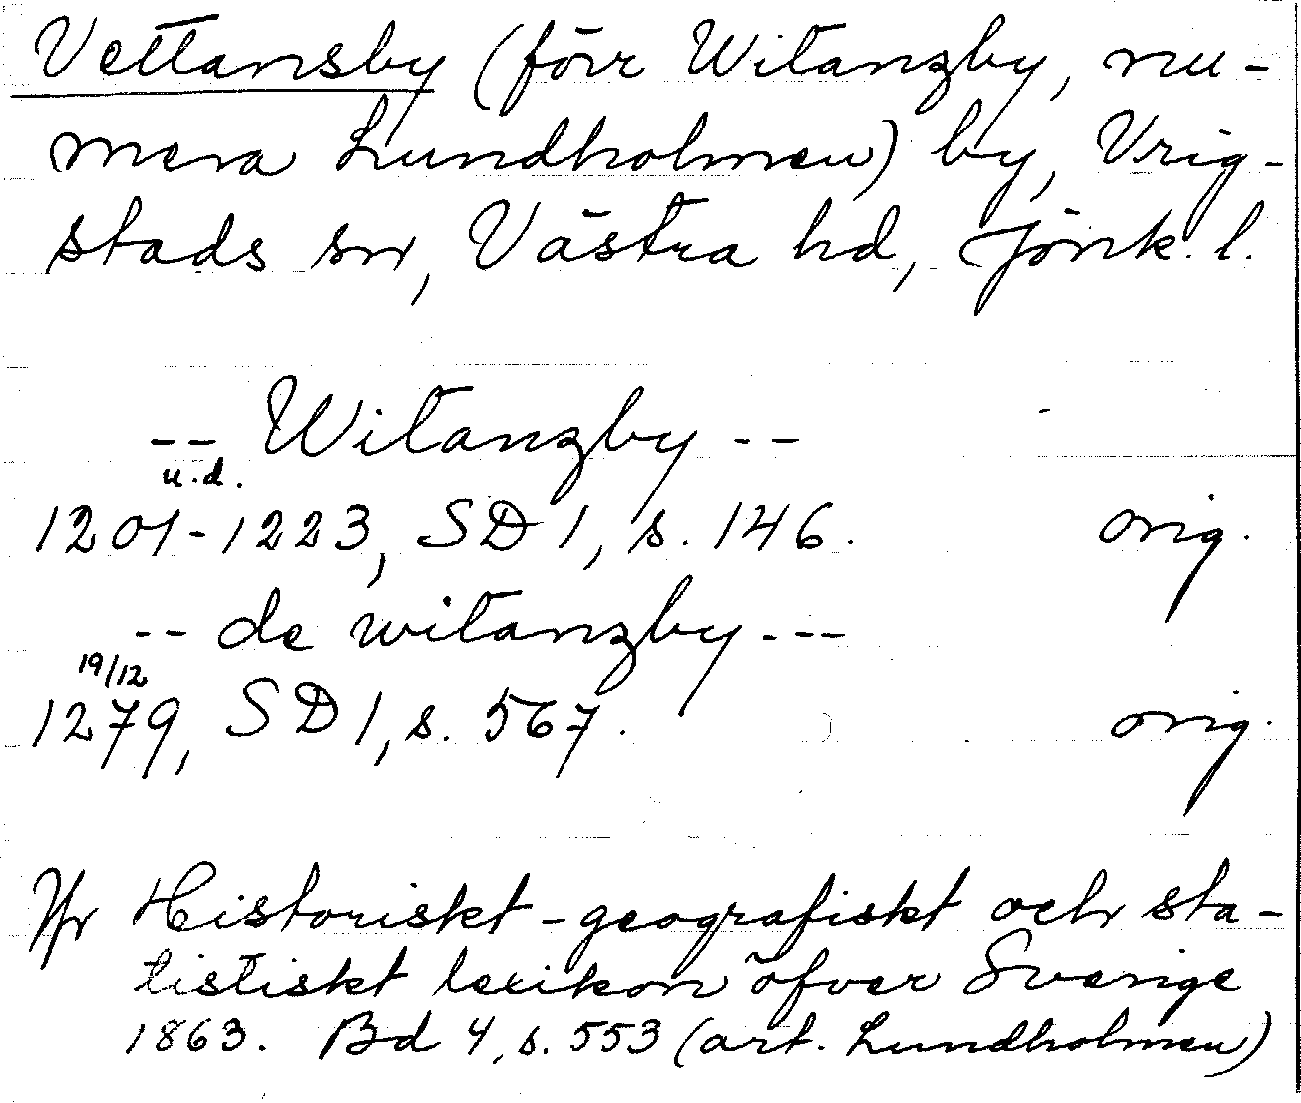 Vettansby (förr Witanzby, nu-
mera Lundholmen) by, Vrig-
stads sn, Västra hd, Jönk. l.
-- Witanzby --
u.d.
1201-1223, SD 1, s. 146. orig.
-- de witanzby ---
19/12
1279, SD 1, s. 567. orig.
Jfr Historiskt-geografiskt och sta-
tistiskt lexikon öfver Sverige
1863. Bd 4, s. 553 (art. Lundholmen)